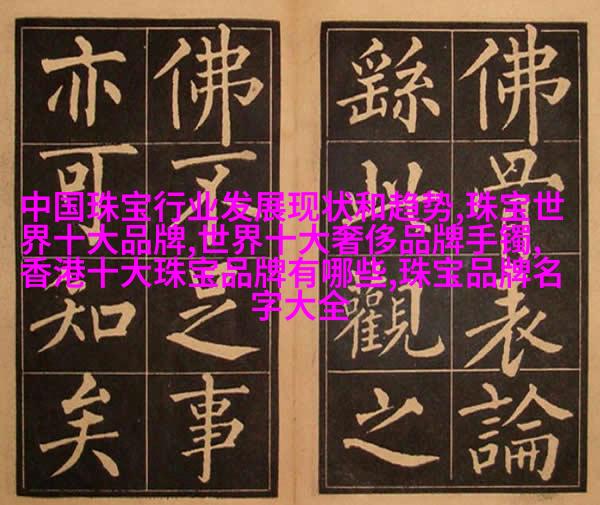 中国珠宝行业发展现状和趋势,珠宝世
界十大品牌,世界十大奢侈品牌手镯,
香港十大珠宝品牌有哪些,珠宝品牌名
字大全
佛骨表論
繇此觀之
佛不足事
亦可知矣